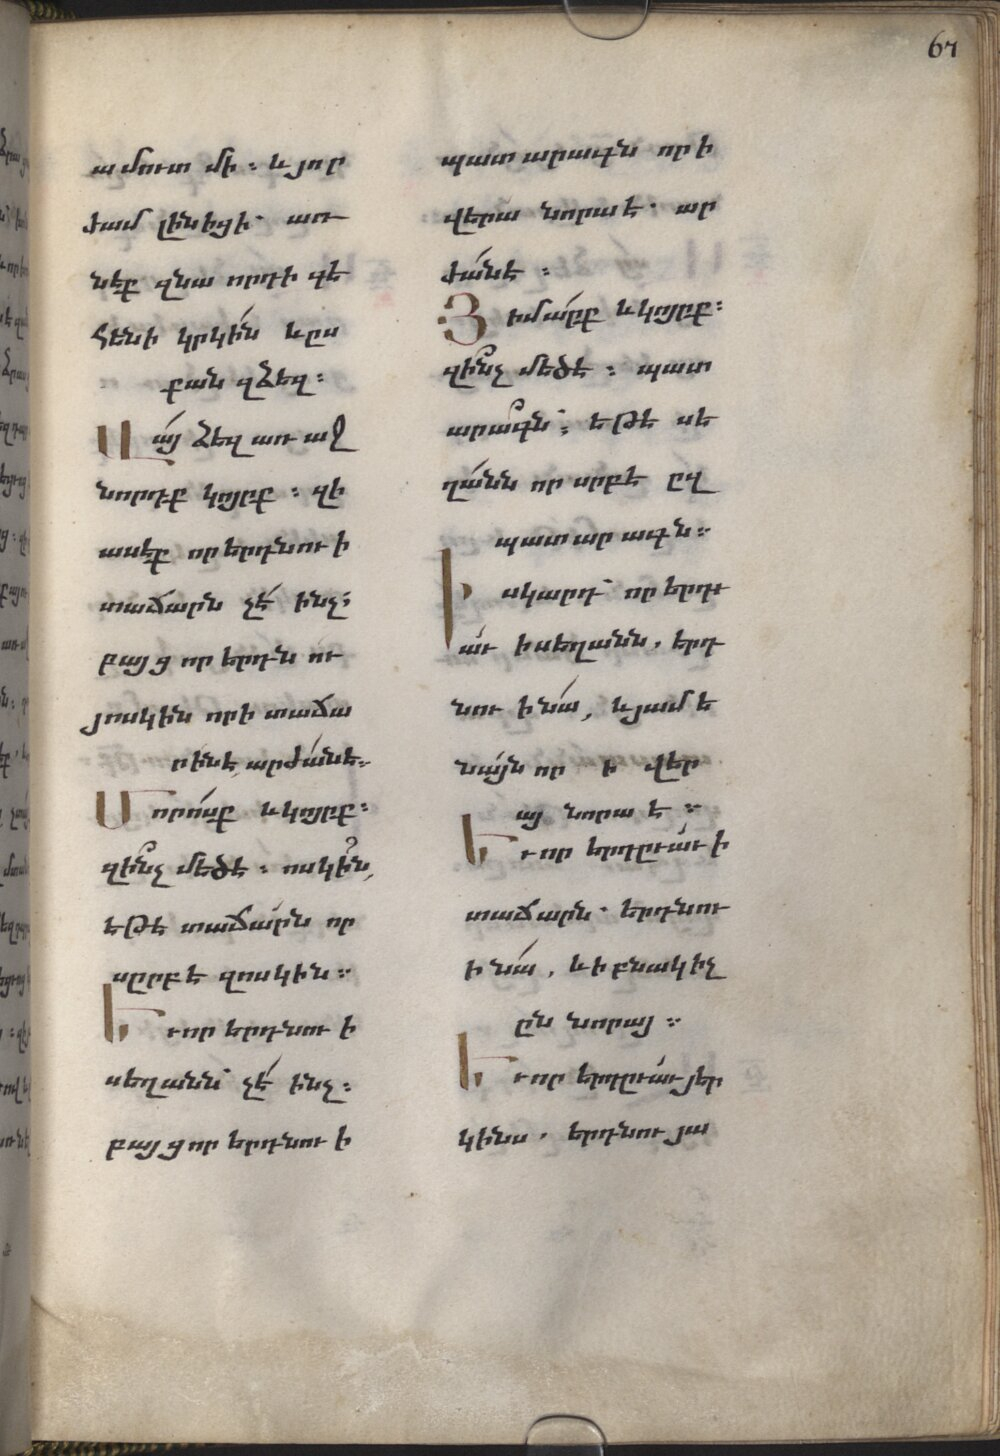 67
ամուտ մի ։ և յոր
ժամ լինիցի՝ առ
նէք զնա որդի գե
հենի կրկի՛ն ևըս
քան զձեզ ։
Վա՛յ ձեզ առ աջ
նորդք կոյրք ։ զի
ասէք որ երդնու ի
տաճարն չէ՛ ինչ ։
բայց որ երդն ու
յոսկին որի տաճա
րինէ, արժա՛նե ։
Մորո՛սք և կոյրք ։
զի՞նչ մեծ է ։ ոսկի՞ն,
եթէ տաճա՛րն որ
սըրբէ զոսկին ։
Եւ որ երդնու ի
սեղանն՝ չէ՛ ինչ ։
բայց որ երդնու ի
պատարագն որ ի
վերա նորա է՝ ար
ժա՛նէ ։
Յիմա՛րք և կոյրք ։
զի՞նչ մեծ է ։ պատ
արա՞գն ։ եթէ սե
ղա՛նն որ սրբէ ըզ
պատար ագն ։
Իսկ արդ՝ որ երդ
ա՛ւ ի սեղանն, երդ
նու ի նա՛, և յամե
նա՛յն որ ի վեր
այ նորա է ։
Եւ որ երդըւա՛ւ ի
տաճարն՝ երդնու
ի նա՛, և ի բնակիչ
ըն նորայ ։
Եւ որ երդըւա՛ւ յեր
կինս, երդնու յա